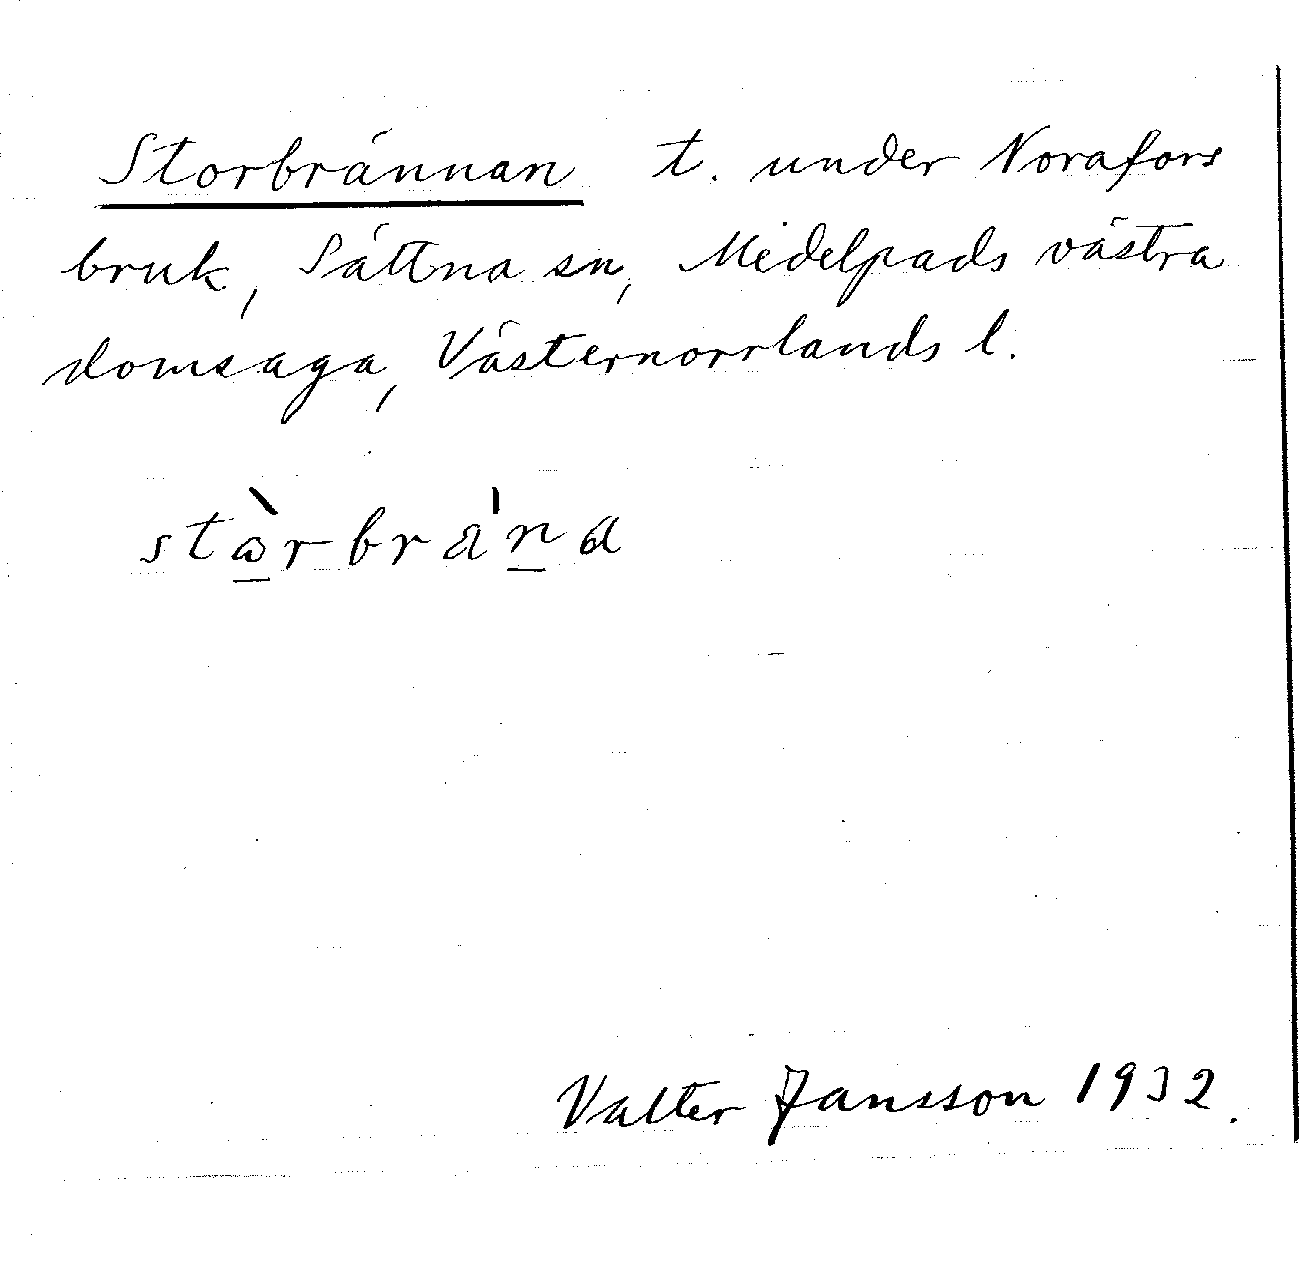 Storbrännan t. under Norafors
bruk, Sättna sn, Medelpads västra
domsaga, Västernorrlands l.
stὼ̲rbränˈn̲a
Valter Jansson 1932.